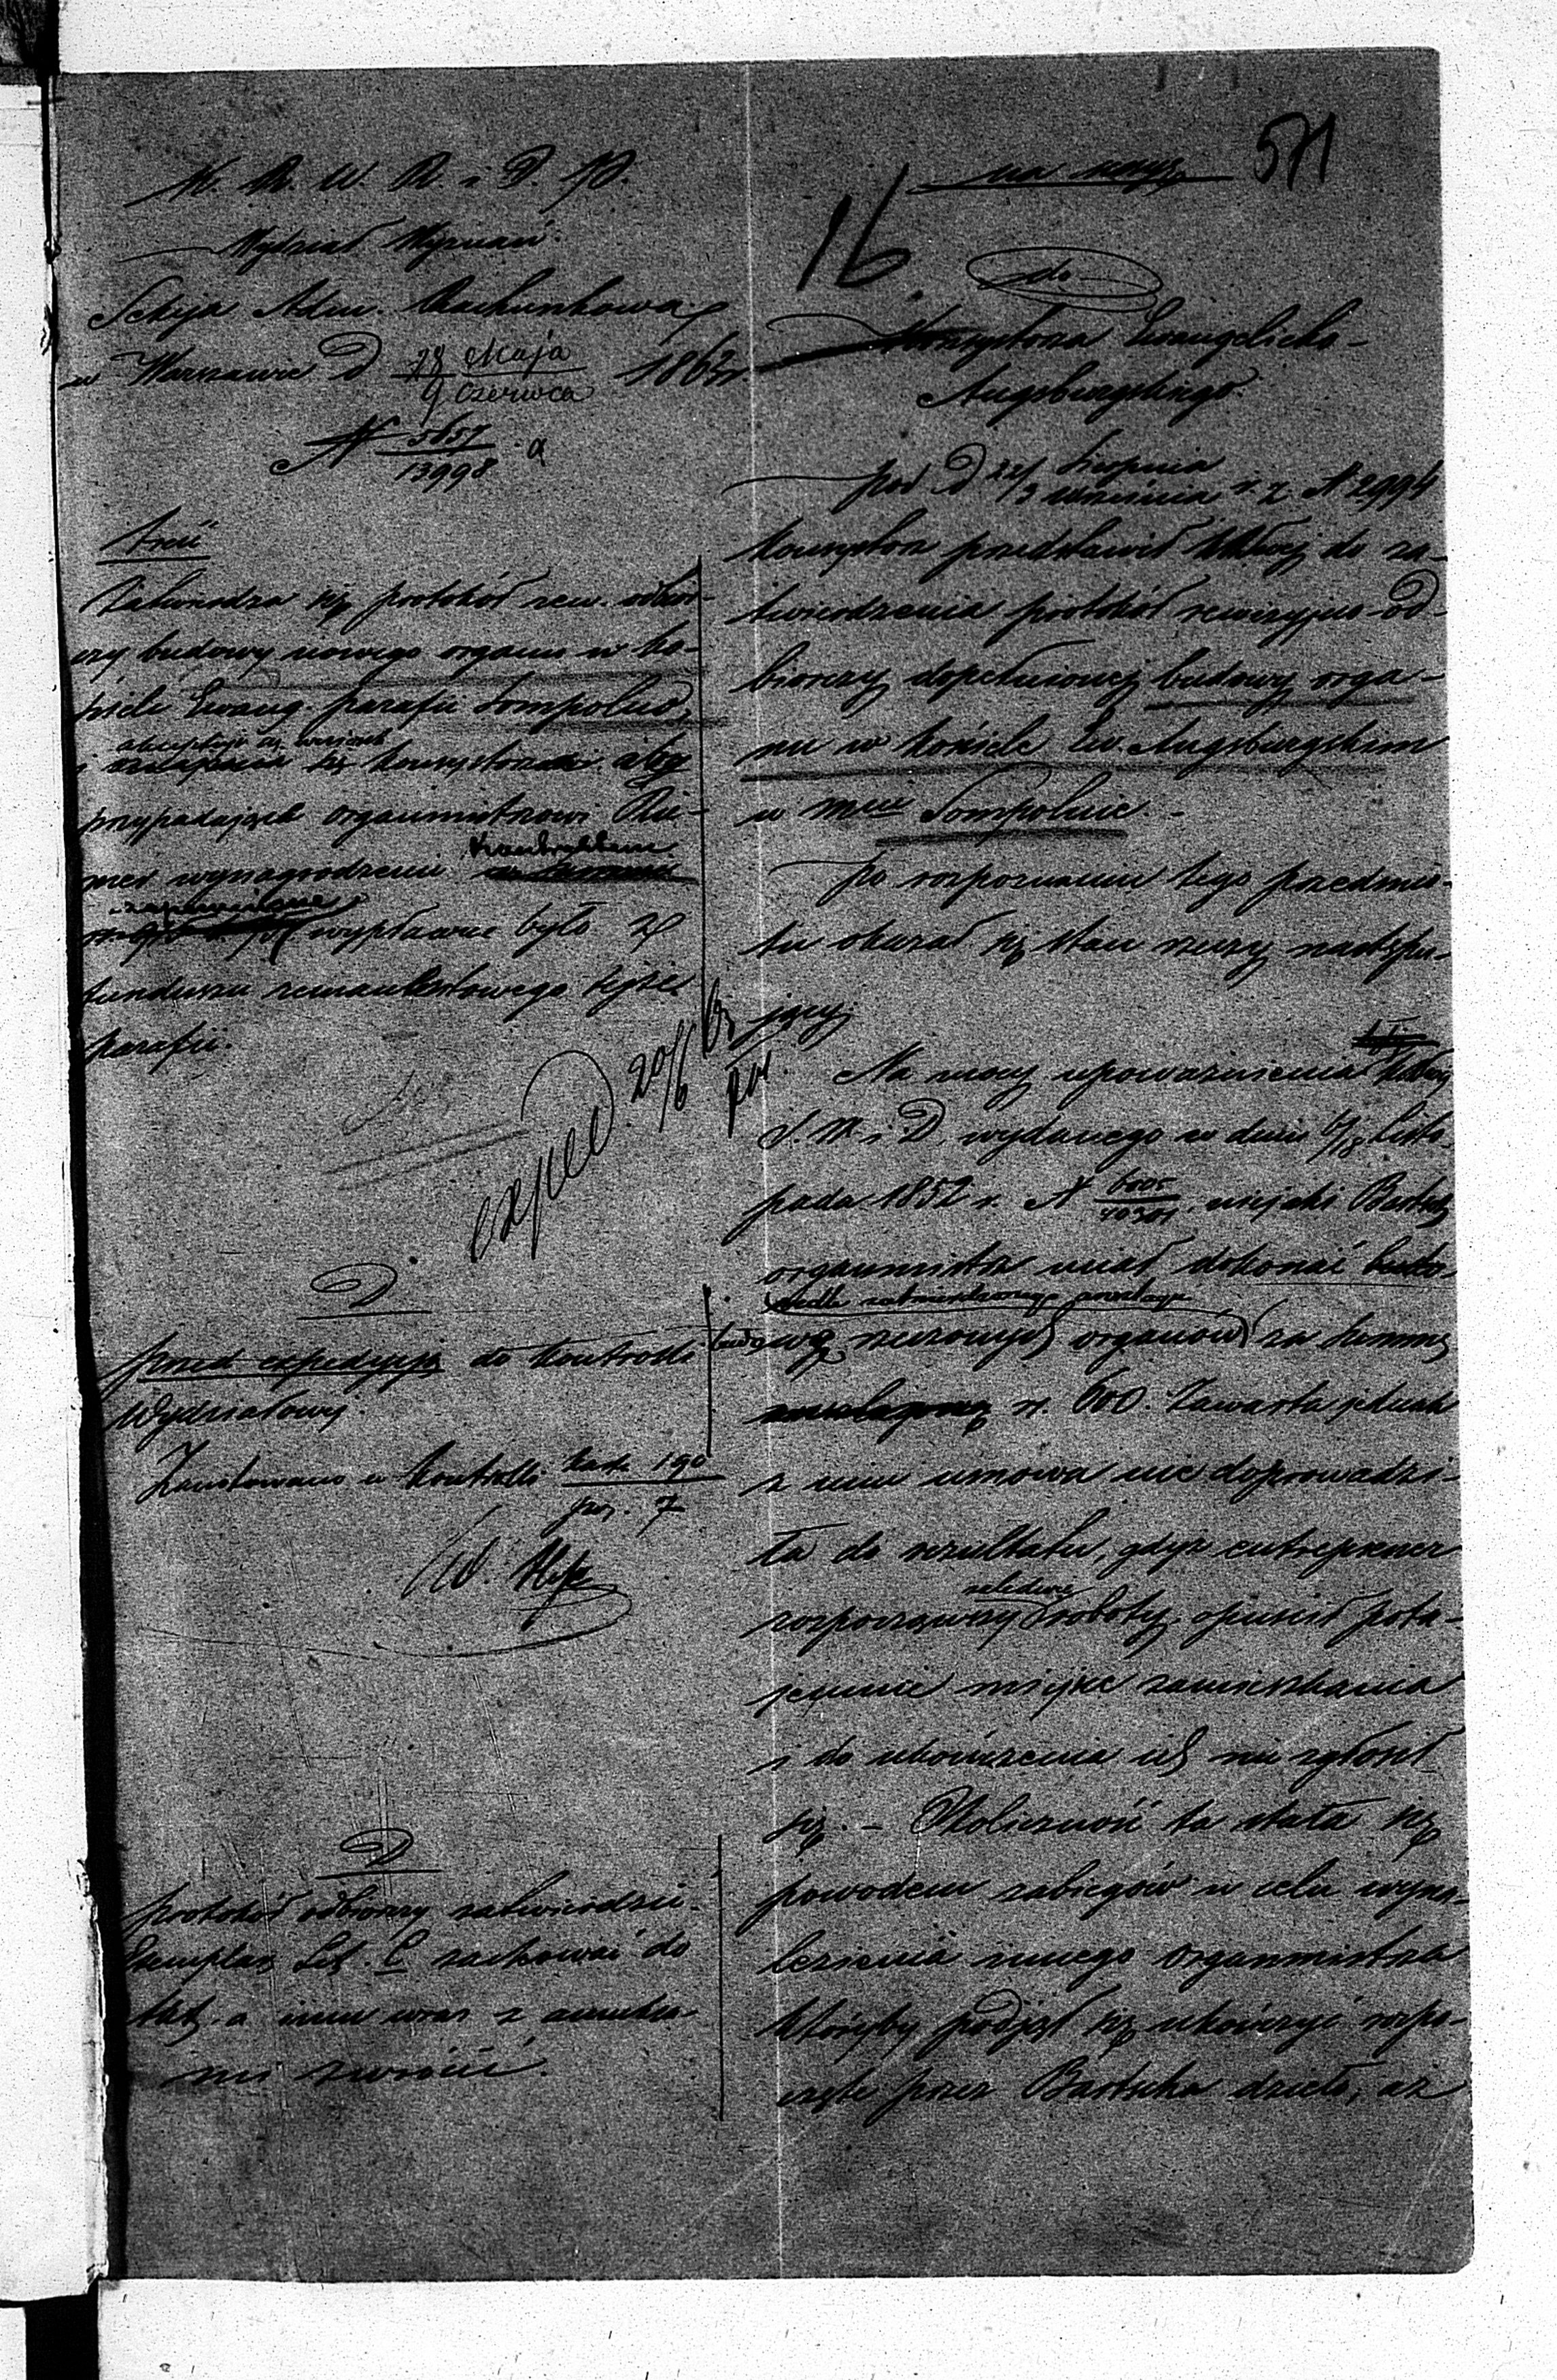 K. R. W. R. i O. P.
Wydział Wyznań.
Sekcja Adm. Rachunkowa
w Warszawie d 28 Maja / 9 Czerwca 1863 r
N 5657 / 13998 a
Treść
Zatwierdza się protokół rew. odbior-
czy budowy nowego organu w ko-
ściele Ewang. parafii Sompolno,
i się konsystorza aby
przypadające organmistrzowi
wynagrodzenie
wypłacone było z
funduszu remanentowego tejże
parafii.
exped. 20/6 63
D.
przed expedycją do kontroli
Wydziałowej.
Zanotowano w kontrolli karta 190
poz. 7
D
protokół odbiorczy zatwierdzić.
Exemplarz Lit. C zachować do
akt, a inne wraz z anneksa-
mi zwrócić.
571
16
do
Konsystorza Ewangelicko-
Augsburgskiego
pod d 22/3 Sierpnia / Września r. z. N 2994
konsystorz przedstawił do za-
twierdzenia protokół rewizyjno-od-
biorczy dopełnionej budowy orga-
nu w kościele Ew. Augsburgskim
w mcie Sompolnie.-
Po rozpoznaniu tego przedmio-
tu okazał się stan rzeczy następu-
jący
Na mocy upoważnienia
S. W. i D. wydanego w dniu 6/18 Listo-
pada 1852 r. N niejaki Bartsch
organmistrz miał dokonać budo-
wę rzeczonych organów za summę
r. 600. Zawarta jednak
z nim umowa nie doprowadzi-
ła do rezultatu, gdyż entreprener
zaledwie
rozpocząwszy roboty, opuścił pota-
jemnie miejsce zamieszkania
i do ukończenia ich nie zgłosił
się. - Okoliczność ta stała się
powodem zabiegów w celu wyna-
lezienia innego organmistrza
któryby podjął się ukończyć rozpo-
częte przez Bartscha dzieło, aż